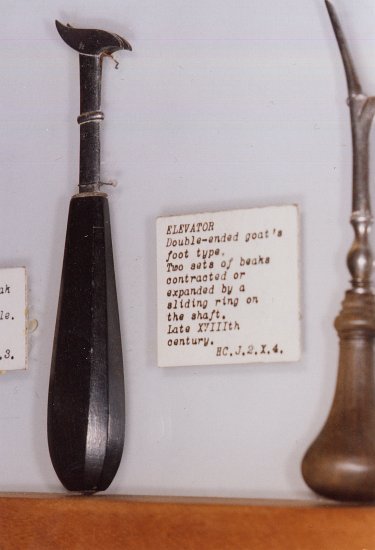 ELEVATOR
Double-ended goat's
foot type.
Two sets of beaks
contracted or
expanded by a
sliding ring on
the shaft.
Late XVIIIth
century.
HC.J.2.X.4.
ak
le.
.3.